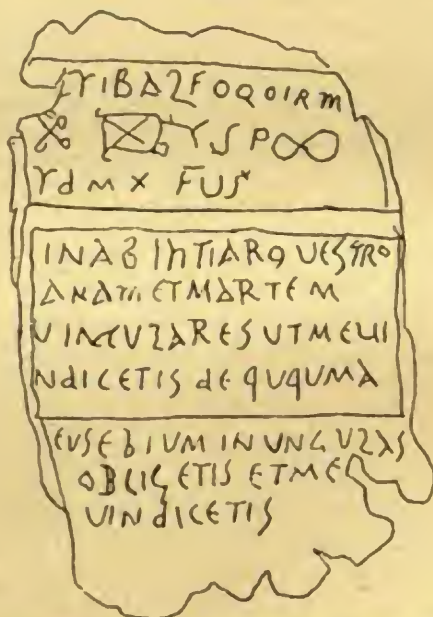 ΥΙΒΑΖFOQOIRM
ΥSP∞
ΥdmX FUS
INABINTIARQUESTRO
ANAM ETMARTEM
VINCUZARESUTMEUI
NDICETIS DE QUQUMA
EUSEBIUM INUNGUZAS
OBLIGETIS ETME
UINDICETIS